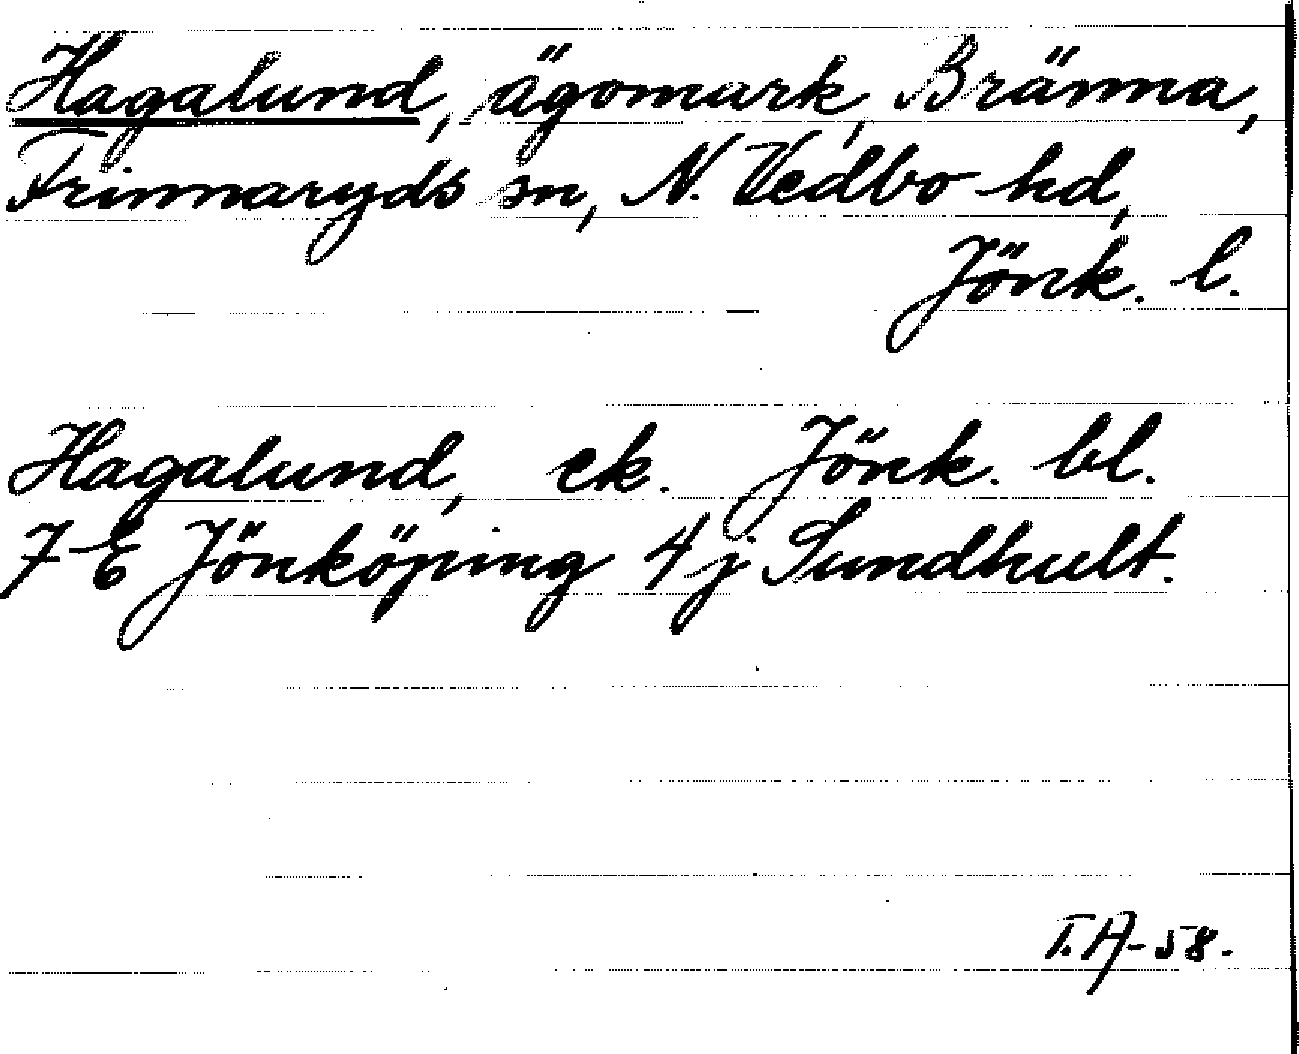 Hagalund, ägomark, Bränna,
Frinnaryds sn, N. Vedbo hd,
Jönk. l.
Hagalund, ek. Jönk. bl.
7 E Jönköping 4 j Sundhult.
T. A-58.